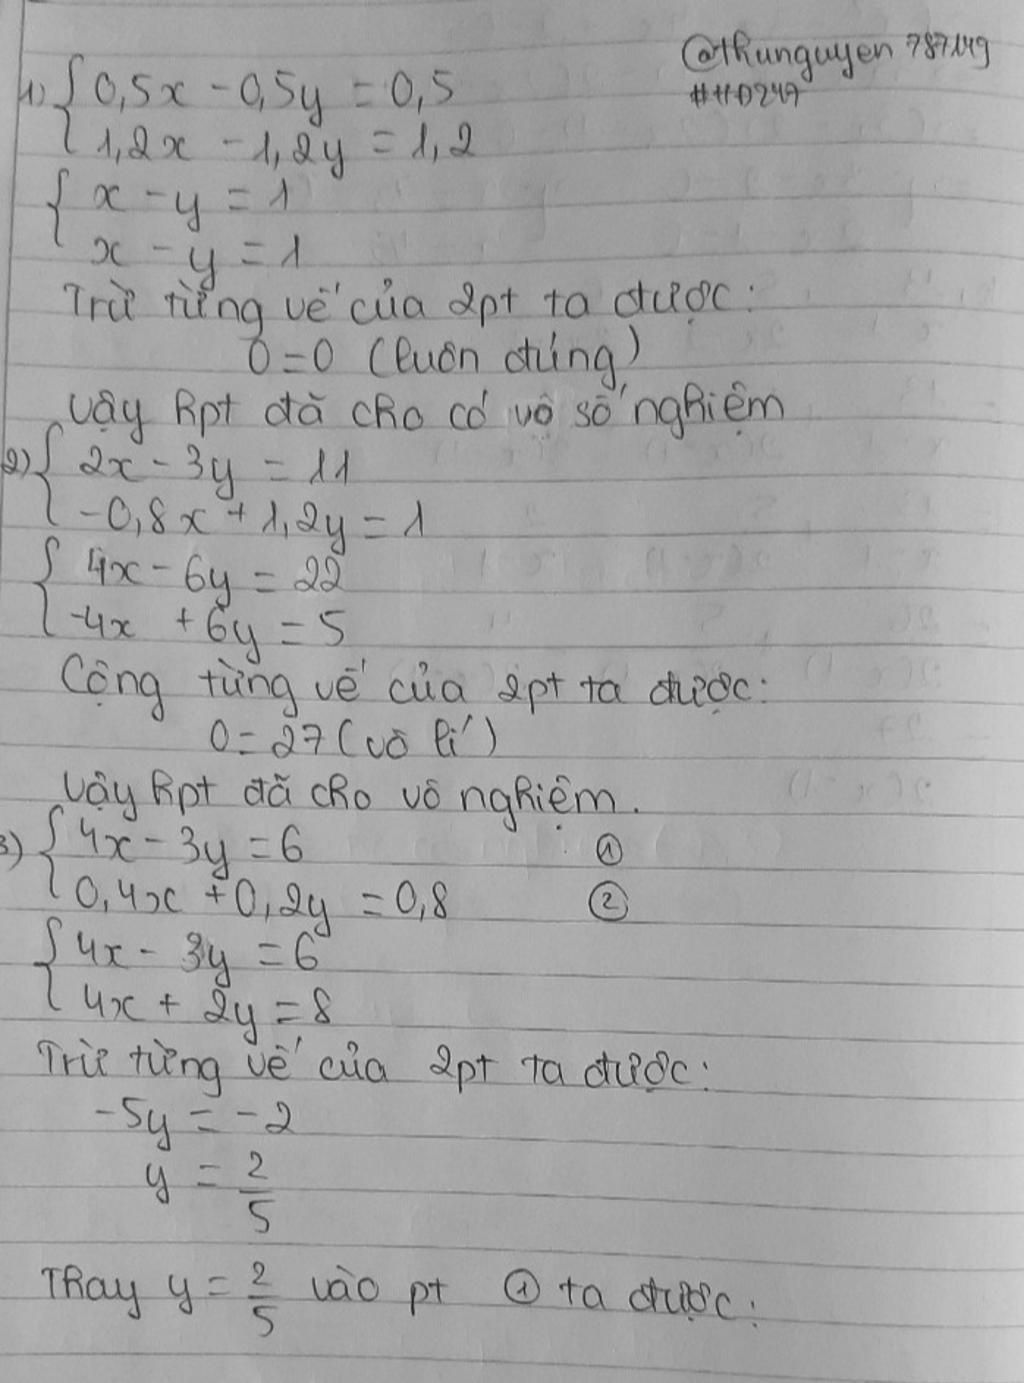 @thunguyen787149
#HD247
1) { 0,5x - 0,5y = 0,5
1,2x - 1,2y = 1,2
{ x - y = 1
x - y = 1
Trừ từng vế của 2pt ta được:
0=0 (luôn đúng)
Vậy hpt đã cho có vô số nghiệm
2) { 2x - 3y = 11
-0,8x + 1,2y = 1
{ 4x - 6y = 22
-4x + 6y = 5
Cộng từng vế của 2pt ta được:
0=27 (vô lí)
Vậy hpt đã cho vô nghiệm.
3) { 4x - 3y = 6 ①
0,4x + 0,2y = 0,8 ②
{ 4x - 3y = 6
4x + 2y = 8
Trừ từng vế của 2pt ta được:
-5y = -2
y = 2/5
Thay y = 2/5 vào pt ① ta được: